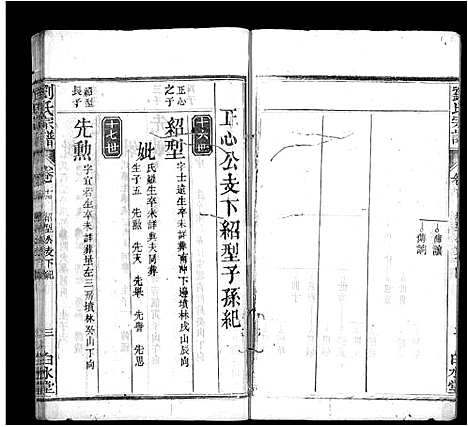 傳讀
傳調
白水堂
正心公支下紹型子孫紀
十六世
正心之子
紹型
字士遠生卒未詳葬南陣下邊墳林戌山辰向
妣
氏羅生卒未詳與夫同葬
生子五 先勲 先天 先舉 先譽 先思
十七世
紹型長子
先勲
字宜若生卒未詳葬屋左三房墳林癸山丁向
劉氏宗譜
紹型公支下紀
三
白水堂